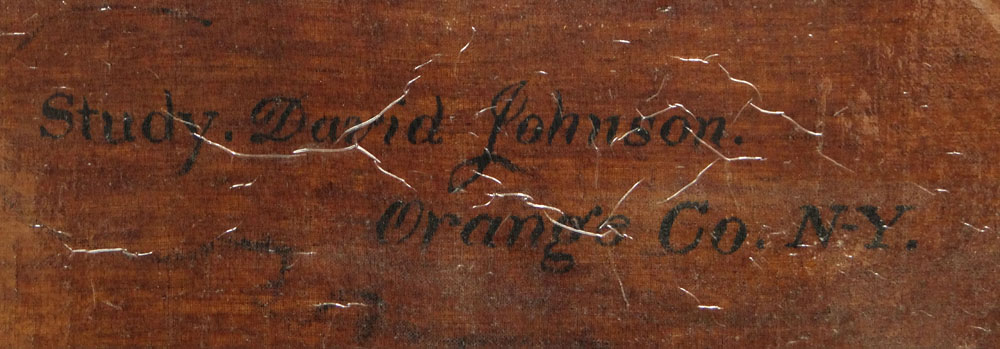 Study. David Johnson.
Orange Co. N-Y.